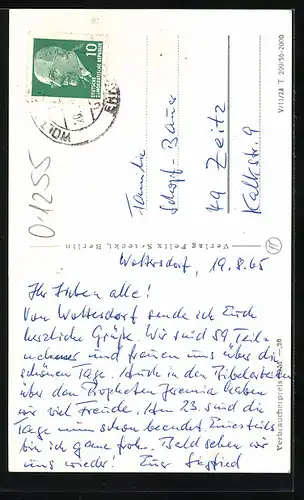 Woltersdorf, 19.8.65
Ihr lieben alle!
Von Woltersdorf sende ich Euch
herzliche Grüße. Wir sind 59 Teil-
nehmer und freuen uns über die
schönen Tage. Auch in den Bibelarbeiten
über den Propheten Jeremia haben
wir viel Freude. Am 23. sind die
Tage nun schon beendet. Einerseits
bin ich ganz froh. Bald sehen wir
uns wieder! Euer Siegfried
Familie
Schopf-Bauer
49 Zeitz
Kalkstr. 9
10
DEUTSCHE
DEMOKRATISCHE
REPUBLIK
01255
Verlag Felix Setecki, Berlin
V/11/28 T 209/56-2000
Verbraucherpreis